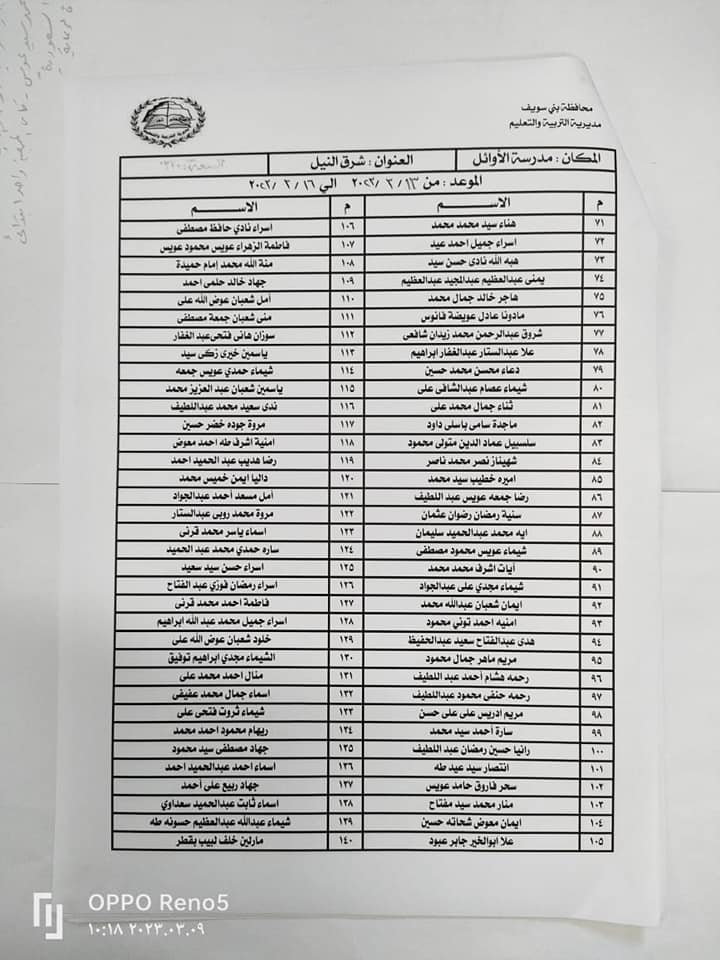 محافظة بني سويف
مديرية التربية والتعليم
المكان : مدرسة الأوائل العنوان : شرق النيل
الموعد : من ٢٠٢٣/٣/١٣ الي ٢٠٢٣/٣/١٦
م الاســـم م الاســـم
٧١ هناء سيد محمد محمد ١٠٦ اسراء نادي حافظ مصطفى
٧٢ اسراء جميل احمد عيد ١٠٧ فاطمة الزهراء عويس محمود عويس
٧٣ هبه الله نادى حسن سيد ١٠٨ منة الله محمد إمام حميدة
٧٤ يمنى عبدالعظيم عبدالمجيد عبدالعظيم ١٠٩ جهاد خالد حلمى احمد
٧٥ هاجر خالد جمال محمد ١١٠ أمل شعبان عوض الله على
٧٦ مادونا عادل عويضة فانوس ١١١ منى شعبان جمعة مصطفى
٧٧ شروق عبدالرحمن محمد زيدان شافعى ١١٢ سوزان هانى فتحى عبد الغفار
٧٨ علا عبدالستار عبدالغفار ابراهيم ١١٣ ياسمين خيرى زكى سيد
٧٩ دعاء محسن محمد حسين ١١٤ شيماء حمدي عويس جمعه
٨٠ شيماء عصام عبدالشافى على ١١٥ ياسمين شعبان عبد العزيز محمد
٨١ ثناء جمال محمد على ١١٦ ندى سعيد محمد عبداللطيف
٨٢ ماجدة سامى باسلى داود ١١٧ مروة جوده خضر حسين
٨٣ سلسبيل عماد الدين متولى محمود ١١٨ امنية اشرف طه احمد معوض
٨٤ شهيناز نصر محمد ناصر ١١٩ رضا هديب عبد الحميد احمد
٨٥ اميره خطيب سيد محمد ١٢٠ داليا ايمن خميس محمد
٨٦ رضا جمعه عويس عبد اللطيف ١٢١ أمل مسعد أحمد عبدالجواد
٨٧ سنية رمضان رضوان عثمان ١٢٢ مروة محمد روبى عبدالستار
٨٨ ايه محمد عبدالحميد سليمان ١٢٣ اسماء ياسر محمد قرنى
٨٩ شيماء عويس محمود مصطفى ١٢٤ ساره حمدي محمد عبد الحميد
٩٠ آيات اشرف محمد محمد ١٢٥ اسراء حسن سيد سعيد
٩١ شيماء مجدي على عبدالجواد ١٢٦ اسراء رمضان فوزي عبد الفتاح
٩٢ ايمان شعبان عبدالله محمد ١٢٧ فاطمة احمد محمد قرنى
٩٣ امنيه احمد توني محمود ١٢٨ اسراء جميل محمد عبد الله ابراهيم
٩٤ هدى عبدالفتاح سعيد عبدالحفيظ ١٢٩ خلود شعبان عوض الله على
٩٥ مريم ماهر جمال محمود ١٣٠ الشيماء مجدي ابراهيم توفيق
٩٦ رحمه هشام أحمد عبد اللطيف ١٣١ منال احمد محمد على
٩٧ رحمه حنفى محمود عبداللطيف ١٣٢ اسماء جمال محمد عفيفى
٩٨ مريم ادريس على على حسن ١٣٣ شيماء ثروت فتحى على
٩٩ سارة أحمد سيد محمد ١٣٤ ريهام محمود احمد محمد
١٠٠ رانيا حسين رمضان عبد اللطيف ١٣٥ جهاد مصطفى سيد محمود
١٠١ انتصار سيد عيد طه ١٣٦ اسماء احمد عبدالحميد احمد
١٠٢ سحر فاروق حامد عويس ١٣٧ جهاد ربيع على أحمد
١٠٣ منار محمد سيد مفتاح ١٣٨ اسماء ثابت عبدالحميد سعداوي
١٠٤ ايمان معوض شحاته حسين ١٣٩ شيماء عبدالله عبدالعظيم حسونه طه
١٠٥ علا ابوالخير جابر عبود ١٤٠ مارلين خلف لبيب بقطر
OPPO Reno5
١٠:١٨ ٢٠٢٣.٠٣.٠٩